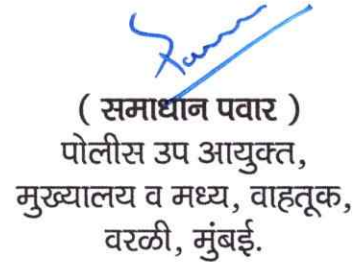 ( समाधान पवार )
पोलीस उप आयुक्त,
मुख्यालय व मध्य, वाहतूक,
वरळी, मुंबई.